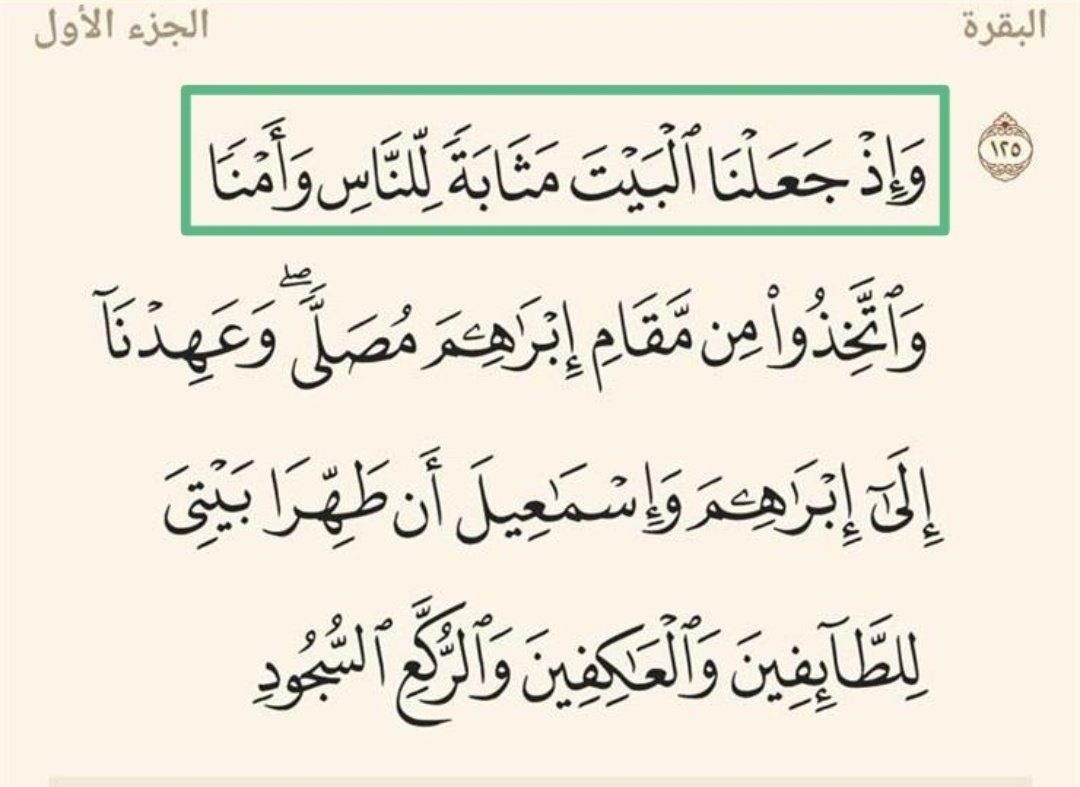 البقرة الجزء الأول
١٢٥ وَإِذْ جَعَلْنَا ٱلْبَيْتَ مَثَابَةً لِّلنَّاسِ وَأَمْنًا
وَٱتَّخِذُوا۟ مِن مَّقَامِ إِبْرَٰهِـۧمَ مُصَلًّى ۖ وَعَهِدْنَآ
إِلَىٰٓ إِبْرَٰهِـۧمَ وَإِسْمَـٰعِيلَ أَن طَهِّرَا بَيْتِىَ
لِلطَّآئِفِينَ وَٱلْعَـٰكِفِينَ وَٱلرُّكَّعِ ٱلسُّجُودِ